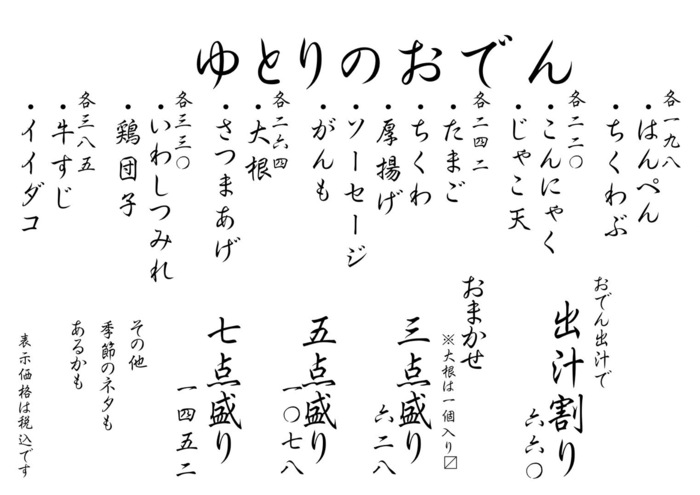 ゆとりのおでん
各一九八
・はんぺん
・ちくわぶ
各二二〇
・こんにゃく
・じゃこ天
各二四二
・たまご
・ちくわ
・厚揚げ
・ソーセージ
・がんも
各二六四
・大根
・さつまあげ
各三三〇
・いわしつみれ
・鶏団子
各三八五
・牛すじ
・イイダコ
おでん出汁で
出汁割り
六六〇
おまかせ
※大根は一個入り〼
三点盛り
六二八
五点盛り
一〇七八
七点盛り
一四五二
その他
季節のネタも
あるかも
表示価格は税込です